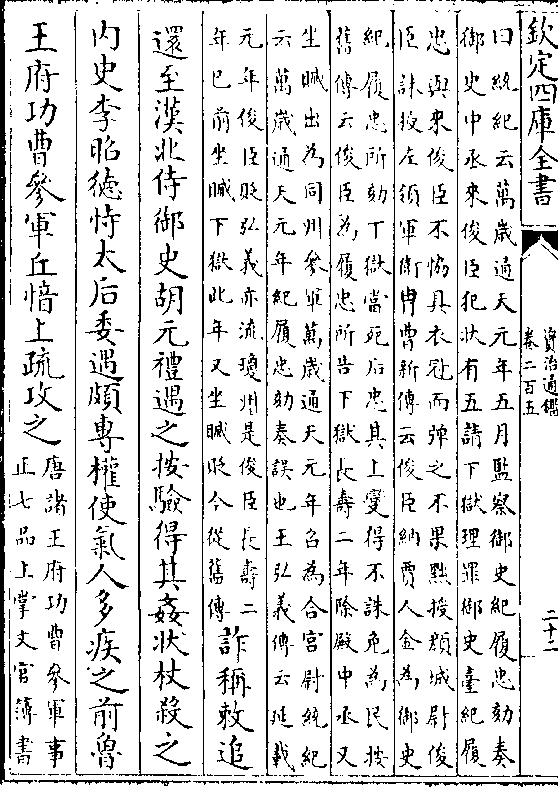 欽定四庫全書
資治通鑑
卷二百五
二十二
曰統紀云萬歲通天元年五月監察御史紀履忠劾奏
御史中丞來俊臣犯狀有五請下獄理罪御史臺紀履
忠與來俊臣不協具衣冠而彈之不果黜授頴城尉俊
臣誅授左領軍衛冑曹新傳云俊臣納賈人金為御史
紀履忠所劾下獄當死后忠其上變得不誅免為民按
舊傳云俊臣為履忠所告下獄長壽二年除殿中丞又
坐贓出為同州參軍萬歲通天元年召為合宫尉統紀
云萬歲通天元年紀履忠劾奏誤也王弘義傳云延載
元年俊臣貶弘義亦流瓊州是俊臣長壽二
年已前坐贓下獄此年又坐贓貶今從舊傳
詐稱敕追
還至漢北侍御史胡元禮遇之按驗得其姦狀杖殺之
内史李昭德恃太后委遇頗專權使氣人多疾之前魯
王府功曹參軍丘愔上疏攻之
唐諸王府功曹參軍事
正七品上掌文官簿書